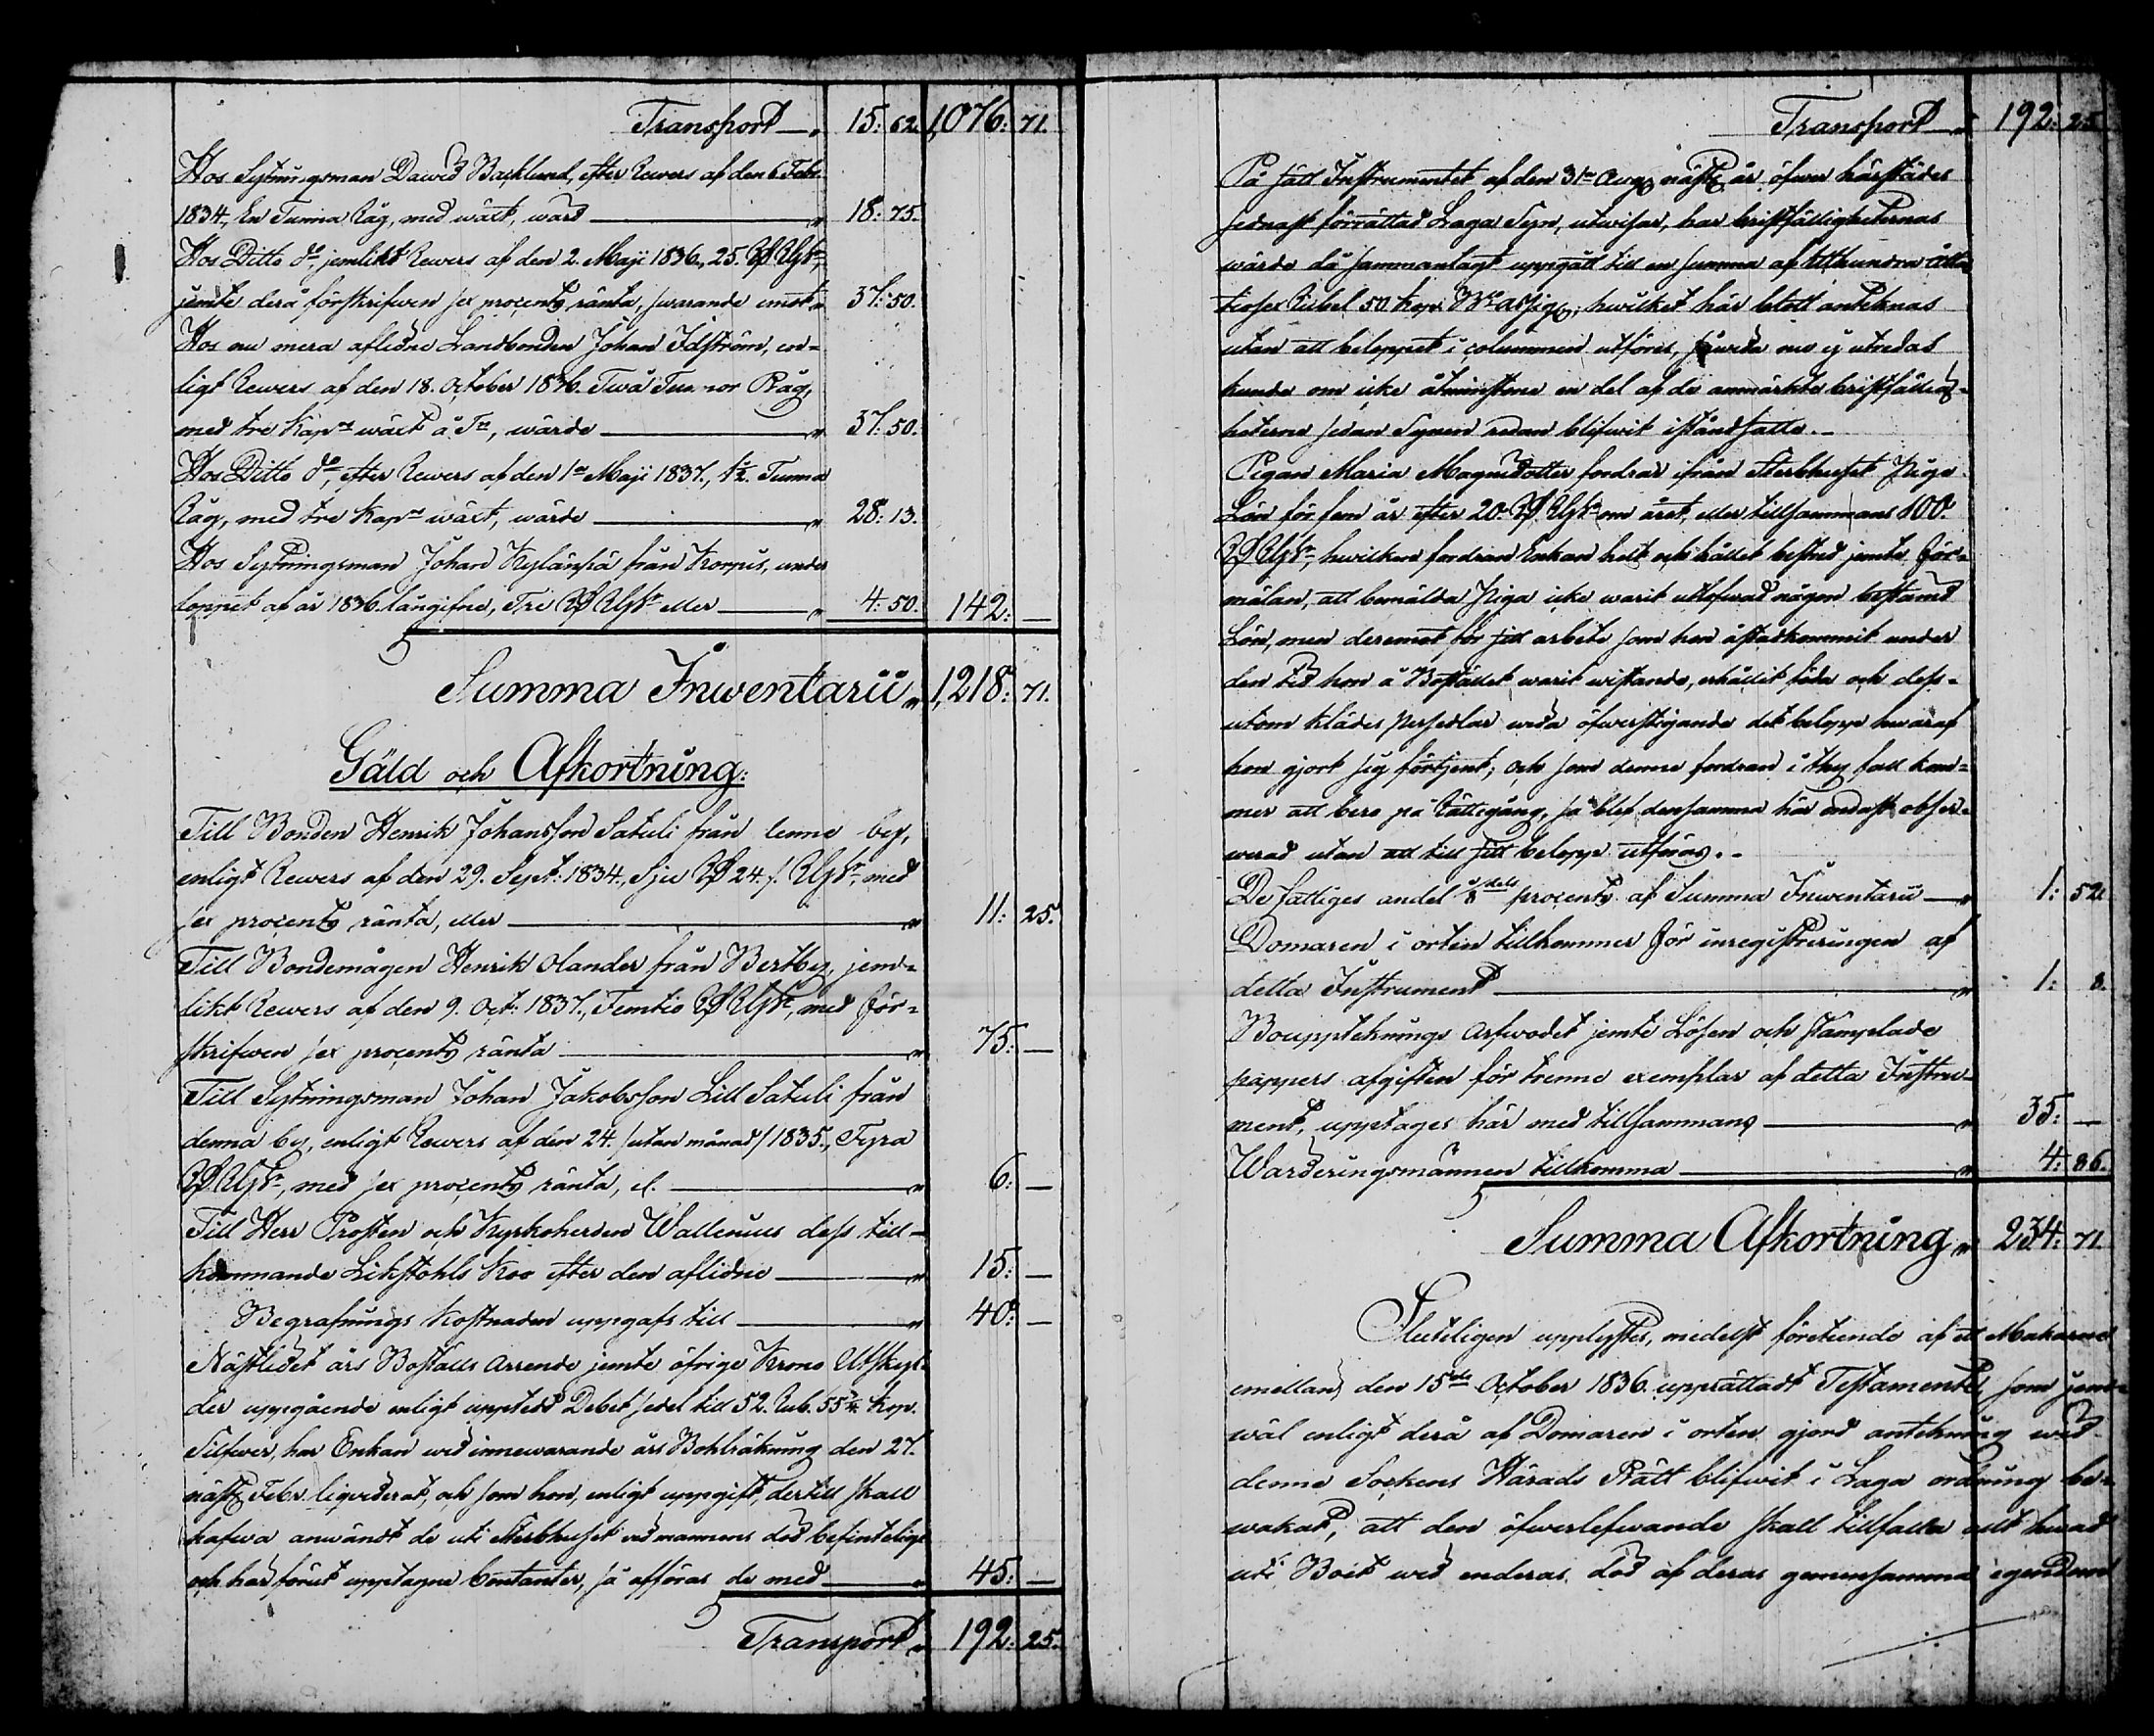 Transport 15: 62. 1,076: 71.
Hos Sytningsman David Backlund, efter Revers af den 6 Febr.
1834, En Tunna Råg, med wäxt, wärd 18: 75.
Hos Ditto do, jemlikt Revers af den 2. Maji 1836, 25. RD RGSr,
jemte derå förskrifwen sex procents ränta, swarande emot 37: 50.
Hos nu mera aflidne Landbonden Johan Idström, en-
ligt Revers af den 18. October 1836. Twå Tunnor Råg,
med tre Kapr wäxt å Tn, wärde 37: 50.
Hos Ditto do, efter Revers af den 1a Maji 1837, 1½ Tunna
Råg, med tre Kapr wäxt, wärde 28: 13.
Hos Sytningsman Johan Kylänpä från Korpis, under
loppet af år 1836 långifne, Tre RD RGSr eller 4: 50. 142: —
Summa Inwentarii 1,218: 71.
Gäld och Afkortning:
Till Bonden Henrik Johansson Satuli från denne by,
enligt Revers af den 29. Sept: 1834, Sju RD 24. s. RGSr, med
sex procents ränta, eller 11: 25.
Till Bondemågen Henrik Olander från Bertby, jem-
likt Revers af den 9. Oct: 1837, Femtio RD RGSr, med för-
skrifwen sex procents ränta 75: —
Till Sytningsman Johan Jakobsson Lill Satuli från
denna by, enligt Revers af den 24. /utan månad/ 1835, Fyra
RD RGSr, med sex procents ränta, el. 6: —
Till Herr Prosten och Kyrkoherden Wallenius dess till-
kommande Likstohls Koo efter den aflidne 15: —
Begrafnings Kostnaden uppgafs till 40: —
Nästlidet års Boställs Arrende jemte öfrige Krono Utskyl-
der uppgående enligt uppteedt Debet sedel till 52. Rub. 55¾ Kop.
Silfwer, har Enkan wid innewarande års Bohlräkning den 27.
nästl Febr. liqviderat, och som hon, enligt uppgift, dertill skall
hafwa anwändt de uti Sterbhuset wid mannens död befintelige
och här förut upptagne Contanter, så afföras de med 45: —
Transport 192: 25.
Transport 192: 25
På sätt Instrumentet af den 31a Aug näst år öfwer härstädes
sednast förrättad Laga Syn, utwisar, har bristfälligheternas
wärde då sammanlagt uppgått till en summa af Etthundra Åtta
tiosex Rubel 50 Kop. Bco Assign, hwilket här blott anteknas
utan att beloppet i columnen utföres, såwida nu ej utredas
kunde om icke åtminstone en del af de anmärkte bristfällig-
heterne sedan Synen redan blifwit iståndsatte.
Pigan Maria Magnidotter fordrar ifrån Sterbhuset Piga
Lön för fem år efter 20. RD RGSr om året, eller tillsammans 100.
RD RGSr, hwilken fordran Enkan helt och hållet bestred jemte för-
mälan, att bemälda Piga icke warit utlofwad någon bestämd
Lön, men deremot för sitt arbete som hon åstadkommit under
den tid hon å Bostället warit wistande, erhållit föda och dess-
utom kläder persedlar wida öfwerstigande det belopp hwaraf
hon gjort sig förtjent; och som denne fordran i thy fall kom-
mer att bero på Rättegång, så blef densamma här endast obser-
werad utan att till sitt belopp utföras.
De fattiges andel ⅛dels procents af Summa Inwentarii 1: 52.
Domaren i orten tillkommer för inregistreringen af
detta Instrument 1: 8.
Boupptekknings Arfwodet jemte Lösen och stämplade
pappers afgiften för trenne exemplar af detta Instru-
ment, upptages här med tillsammans 35: —
Warderingsmännen tillkomma 4: 86.
Summa Afkortning 234: 71.
Sluteligen upplystes, medelst företeende af ett Makarne
emellan den 15de October 1836. upprättadt Testamente, som jem-
wäl enligt derå af Domaren i orten gjord antekning wid
denne Sockens Härads Rätt blifwit i Laga ordning be-
wakat, att den öfwerlefwande skall tillfalla allt hwad
uti Boet wid enderas död af deras gemensamma egendom